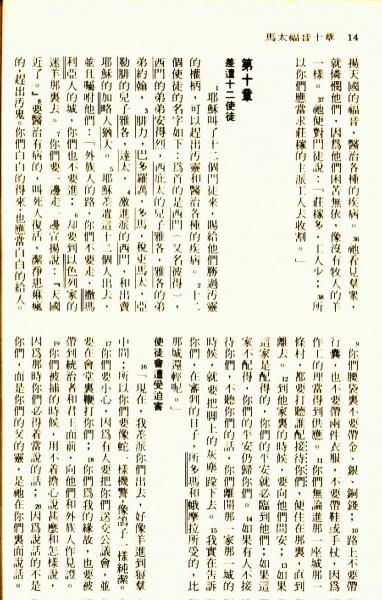 馬太福音十章　14
揚天國的福音，醫治各種的疾病。36祂看見羣衆，
就憐憫他們，因爲他們困苦無依，像沒有牧人的羊
一樣。37祂便對門徒說：「莊稼多，工人少；38所
以你們應當求莊稼的主派工人去收割。」
第十章
差遣十二使徒
1耶穌叫了十二個門徒來，賜給他們勝過汚靈
的權柄，可以趕出汚靈和醫治各種的疾病。2十二
個使徒的名字如下：爲首的是西門（又名彼得），
西門的弟弟安得烈，西庇太的兒子雅各，雅各的弟
弟約翰，3腓力，巴多羅邁，多馬，稅吏馬太，亞
勒腓的兒子雅各，達太，4激進派的西門，和出賣
耶穌的加略人猶大。5耶穌差遣這十二個人出去，
並且囑咐他們：「外族人的路，你們不要走，撒瑪
利亞人的城，你們也不要進；6却要到以色列家的
迷羊那裏去。7你們要一邊走一邊宣揚說：『天國
近了。』8要醫治有病的，叫死人復活，潔淨患痲瘋
的，趕出汚鬼。你們白白的得來，也應當白白的給人。
9你們腰袋裏不要帶金、銀、銅錢；10路上不要帶
行囊，也不要帶兩件衣服，不要帶鞋或手杖，因爲
作工的理當得到供應。11你們無論進那一座城那一
條村，都要打聽誰配接待你們，便住在那裏，直到
離去。12到他家裏的時候，要向他們問安；13如果
這家是配得的，你們的平安就必臨到他們；如果這
家不配得，你們的平安仍歸你們。14如果有人不接
待你們，不聽你們的話，你們離開那一家那一城的
時候，就要把脚上的灰塵跺下去。15我實在告訴
你們，在審判的日子，所多瑪和蛾摩拉所受的，比
那城還輕呢。」
使徒會遭受迫害
16「現在，我差派你們出去，好像羊進到狼羣
中間；所以你們要像蛇一樣機警，像鴿子一樣純潔。
17你們要小心，因爲有人要把你們送交公議會，並
要在會堂裏鞭打你們；18你們爲我的緣故，也要被
帶到統治者和君王面前，向他們和外族人作見證。
19你們被捕的時候，用不着擔心說甚麽和怎樣說，
因爲那時你們必得着當說的話；20因爲說話的不是
你們，而是你們的父的靈，是祂在你們裏面說話。